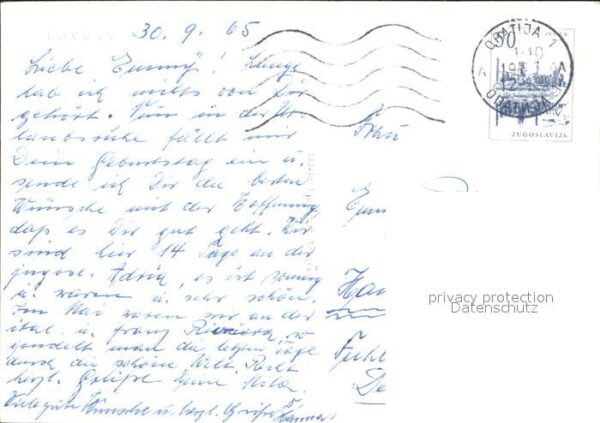 LOVRAN
30. 9. 65
Liebe Emmy! Lange
hab ich nichts von Dir
gehört. Nun in der Ur-
laubsruhe fällt mir
Dein Geburtstag ein u.
sende ich Dir die besten
Wünsche mit der Hoffnung,
daß es Dir gut geht. Wir
sind hier 14 Tage an der
jugosl. Adria, es ist sonnig
u. warm u. sehr schön.
Im Mai waren wir an der
ital. u. franz. Riviera, so
gondelt man die letzten Tage
durch die schöne Welt. Recht
herzl. Grüße Deine
Viele gute Wünsche u. herzl. Grüße Hanna
Frau
OPATIJA 1
1-10
A
OPATIJA
50
JUGOSLAVIJA
privacy protection
Datenschutz